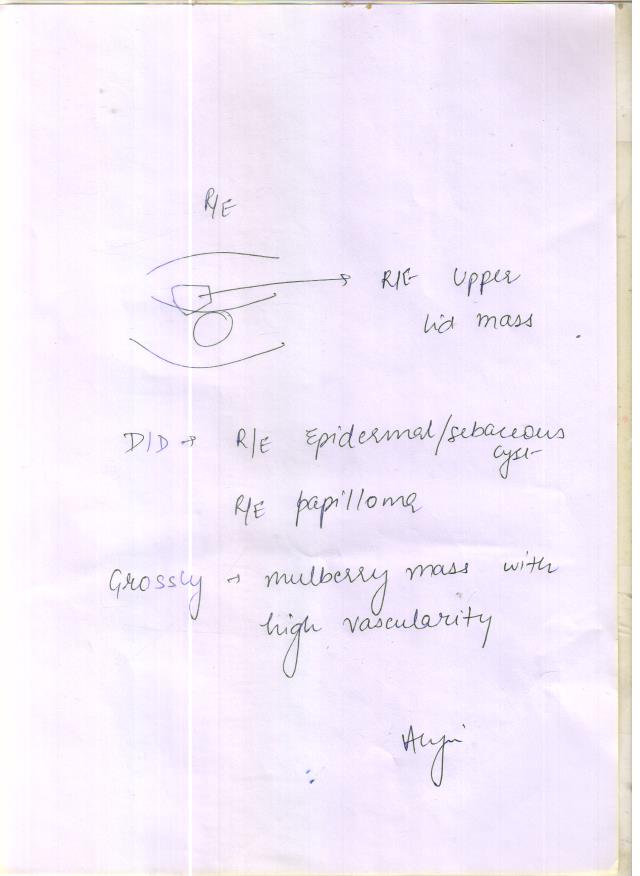 R/E
R/E Upper
lid mass
D/D → R/E Epidermal/sebaceous
cyst
R/E papilloma
Grossly → mulberry mass with
high vascularity